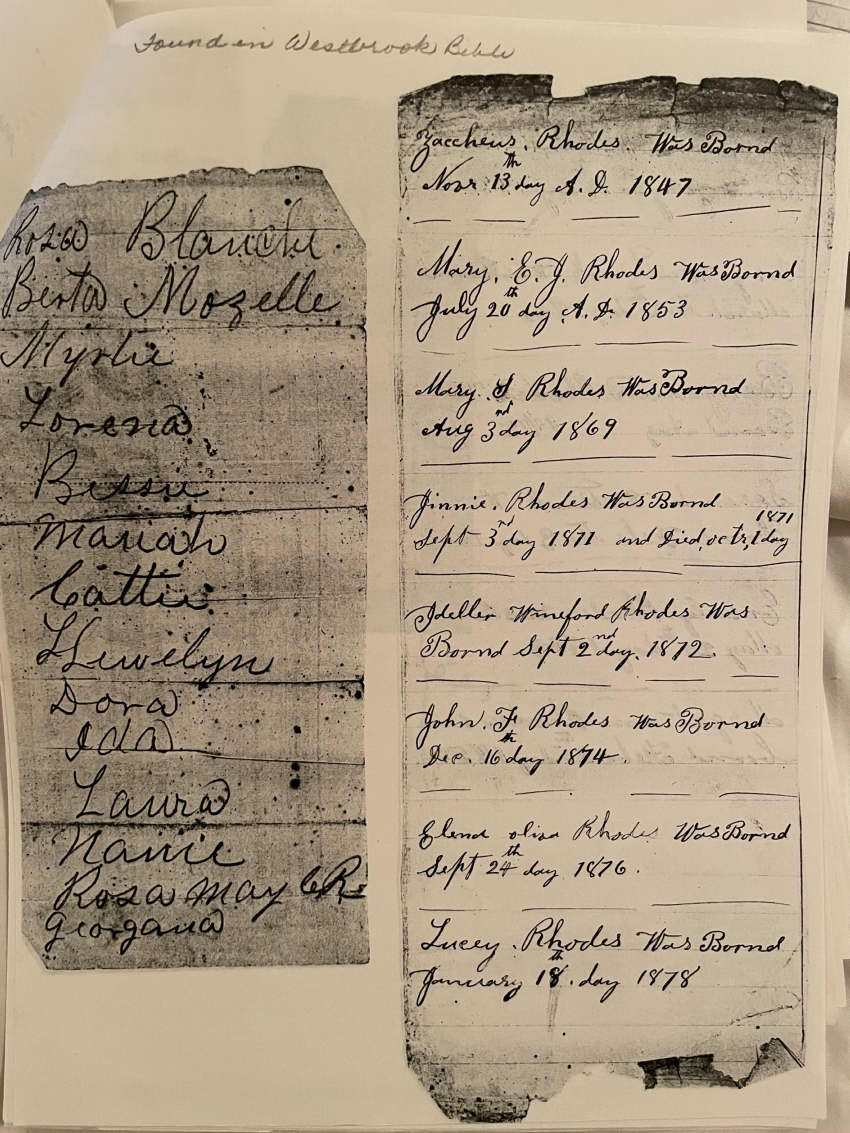 Found in Westbrook Bible
Rosa Blanche
Berta Mozelle
Myrtie
Lorena
Bessie
Mariah
Cattie
LLewelyn
Dora
Ida
Laura
Nanie
Rosa May
Georgana
Zaccheus. Rhodes. Was Bornd
Novr 13th day A. D. 1847
Mary. E. J. Rhodes Was Bornd
July 20th day A. D. 1853
Mary. S Rhodes Was Bornd
Aug 3rd day 1869
Jinnie. Rhodes Was Bornd
Sept 3rd day 1871 and Died, octr, 1 day 1871
Ideller Wineford Rhodes Was
Bornd Sept 2nd day. 1872.
John. F Rhodes Was Bornd
Dec. 16th day 1874.
Elena oliva Rhodes Was Bornd
Sept 24th day 1876.
Lucey. Rhodes Was Bornd
January 18th. day 1878